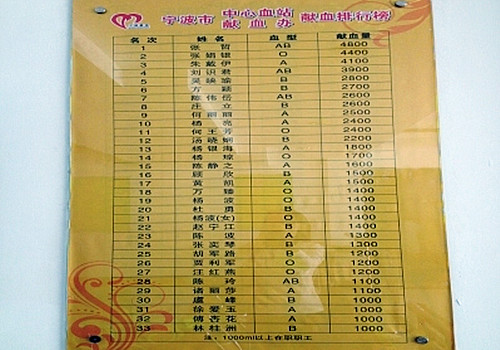 宁波市 中心血站 献血办 献血排行榜
名次 姓名 血型 献血量
1 张哲 AB 4800
2 张娟银 O 4400
3 朱戴伊 A 4100
4 刘识君 AB 3900
5 吴映瑜 B 2800
6 方颖 B 2700
7 陈伟岳 AB 2600
8 庄立 B 2600
9 何丽丽 A 2500
10 杨亮 A 2400
11 何王芳 O 2400
12 汤晓娴 B 2200
13 杨银海 A 1800
14 杨琼 O 1700
15 陈静之 A 1600
16 顾欣 B 1500
17 黄凯 A 1500
18 方臻 O 1400
19 杨波 O 1400
20 杜勇 B 1400
21 杨波(女) O 1400
22 赵宁江 B 1400
23 陈波 A 1300
24 张奕琴 B 1300
25 胡军路 B 1200
26 贾利军 O 1200
27 汪红燕 O 1200
28 陈玲 AB 1100
29 诸丽莎 A 1100
30 虞峰 B 1000
31 徐爱玉 A 1000
32 傅杏花 A 1000
33 林柱洲 B 1000
注：1000ml以上在职职工